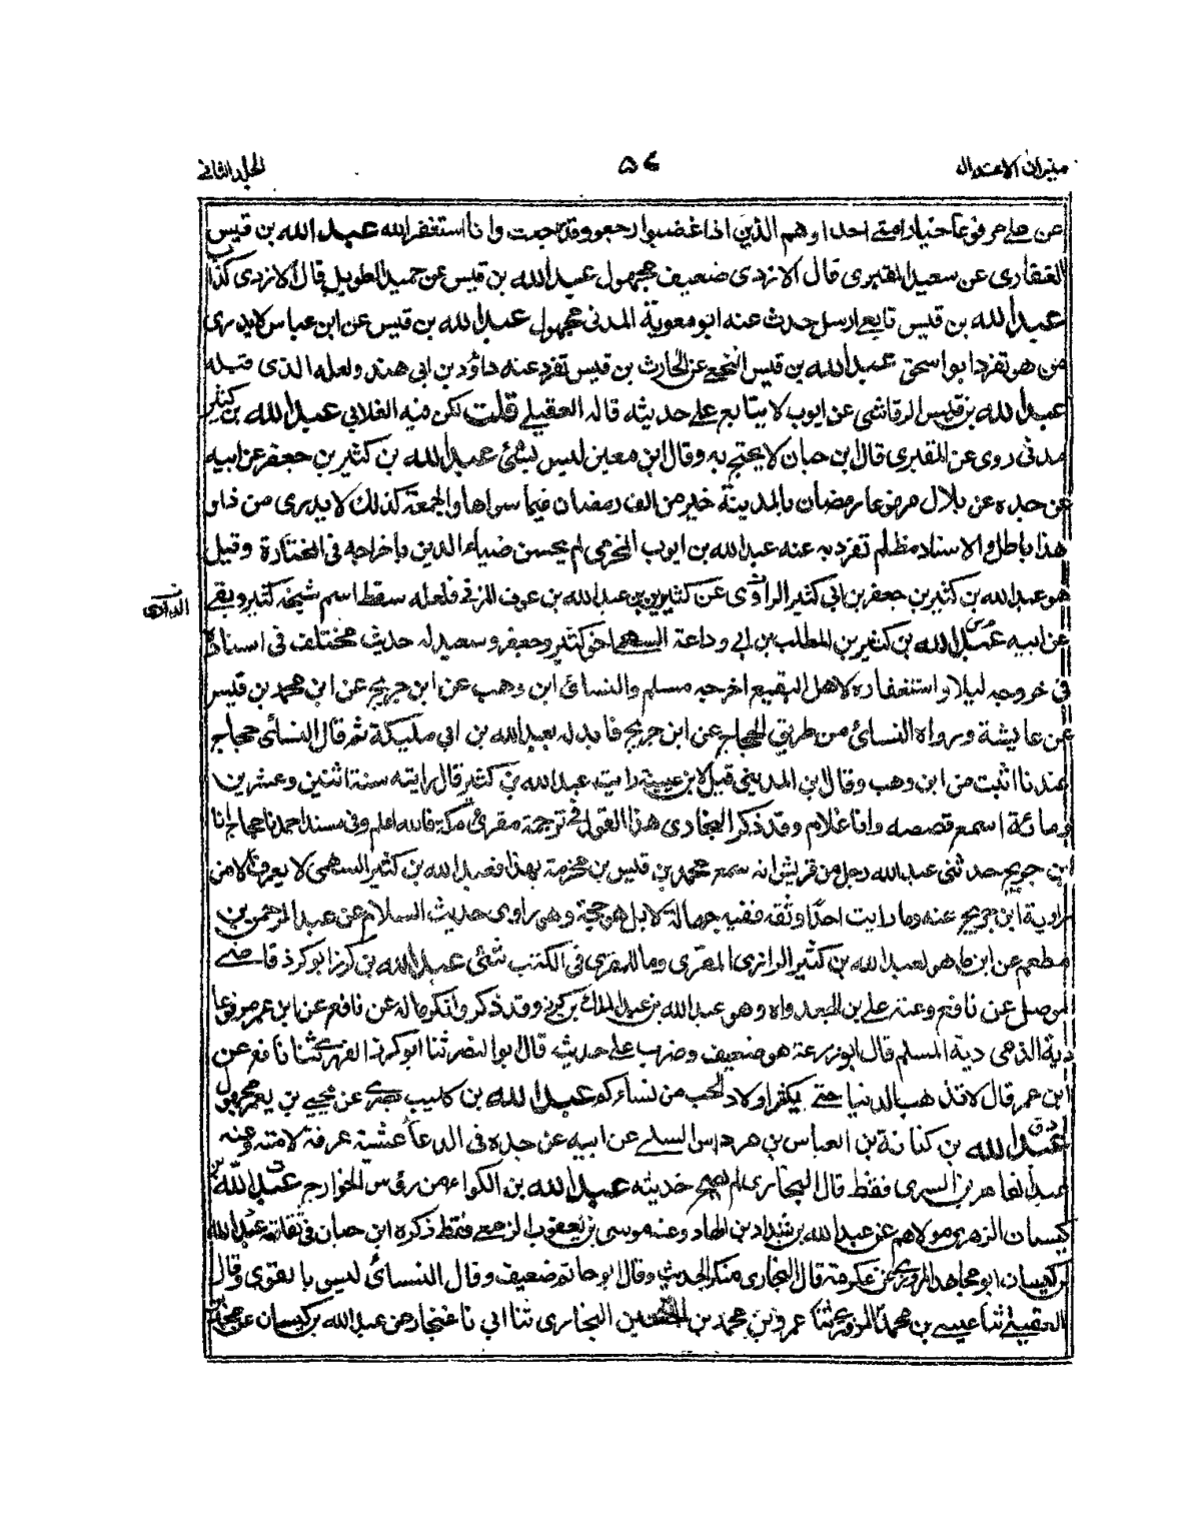 ميزان الاعتدال
٥٤
الجلد الثاني
عن علي مرفوعا خيار امتي احداوهم الذين اذا غضبوا رجعوا وقد رجعت وانا استغفر الله عبد الله بن قيس
الغفاري عن سعيد المقبري قال الازدي ضعيف مجهول عبد الله بن قيس عن حميد الطويل قال الازدي كذاب
عبد الله بن قيس تابعي ارسل حدث عنه ابو معوية المدني مجهول عبد الله بن قيس عن ابن عباس لا يدرى
من هو تفرد ابو اسحق عبد الله بن قيس النخعي عن الحارث بن قيس تفرد عنه داؤد بن ابي هند ولعله الذي قبله
عبد الله بن قيس الرقاشي عن ايوب لا يتابع على حديثه قاله العقيلي قلت لكن فيه الغلابي عبد الله بن كثير
مدني روى عن المقبري قال ابن حبان لا يحتج به وقال ابن معين ليس بشئ عبد الله بن كثير بن جعفر عن ابيه
عن جده عن بلال مرفوعا رمضان بالمدينة خير من الف رمضان فيما سواها والجمعة كذلك لا يدرى من ذا و
هذا باطل والاسناد مظلم تفرد به عنه عبد الله بن ايوب المخرمي لم يحسن ضياء الدين باخراجه في المختارة وقيل
هو عبد الله بن كثير بن جعفر بن ابي كثير الراوي عن كثير بن عبد الله بن عوف المزني فلعله سقط اسم شيخه كثير وبقي
عن ابيه عبد الله بن كثير بن المطلب بن ابي وداعة السهمي اخو كثير وجعفر وسعيد له حديث مختلف في اسناده
في خروجه ليلا واستغفاره لاهل البقيع اخرجه مسلم والنسائ ابن وهب عن ابن جريج عن ابن محمد بن قيس
عن عايشة ورواه النسائ من طريق الحجاج عن ابن جريج فابدله بعبد الله بن ابي مليكة ثم قال النسائ حجاج
عندنا اثبت من ابن وهب وقال ابن المديني قيل لابن عيينة رايت عبد الله بن كثير قال رايته سنة اثنتين وعشرين
ومائة اسمع قصصه وانا غلام وقد ذكر البخاري هذا القول في ترجمة مقرئ مكة فالله اعلم وفي مسند احمد نا حجاج انا
ابن جريج حدثني عبد الله رجل من قريش انه سمع محمد بن قيس بن مخرمة بهذا فعبد الله بن كثير السهمي لا يعرف الا من
رواية ابن جريج عنه وما رايت احدا وثقه ففيه جهالة لا بل هو حجة وهو راوي حديث السلام عن عبد الرحمن بن
مطعم عن ابن ماهو لعبد الله بن كثير الرازي المقري وما للمقري في الكتب شئ عبد الله بن كرز ابو كرز قاضي
الموصل عن نافع وعنه علي بن الجعد واه وهو عبد الله بن عبد الملك بن كرز وقد ذكر وانكر ماله عن نافع عن ابن عمر مرفوعا
دية الذمي دية المسلم قال ابو زرعة هو ضعيف وضرب على حديثه قال ابو النضر ثنا ابو كرز الفهري ثنا نافع عن
ابن عمر قال لا تذهب الدنيا حتى يكفر اولاد الحب من نساءكم عبد الله بن كليب بصري عن يحيى بن يعمر مجهول
عبد الله بن كنانة بن العباس بن مرداس السلمي عن ابيه عن جده في الدعا عشية عرفة لامته وعنه
عبد القاهر بن السري فقط قال البخاري لم يصح حديثه عبد الله بن الكواء من رؤس الخوارج عبد الله بن
كيسان الزهري مولاهم عن عبد الله بن شداد بن الهاد وعنه موسى بن يعقوب الزمعي فقط ذكره ابن حبان في ثقاته عبد الله
بن كيسان ابو مجاهد المروزي عن عكرمة قال البخاري منكر الحديث وقال ابو حاتم ضعيف وقال النسائ ليس بالقوي وقال
العقيلي ثنا عيسى بن محمد المروزي ثنا عمرو بن محمد بن الحسين البخاري ثنا ابي نا غنجار عن عبد الله بن كيسان عن محمد بن